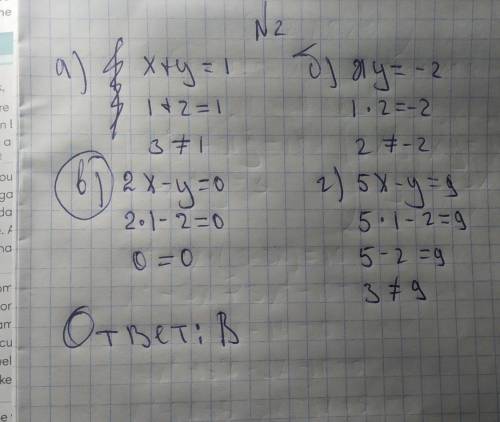 №2
а) x+y=1
1+2=1
3≠1
б) xy=-2
1·2=-2
2≠-2
в) 2x-y=0
2·1-2=0
0=0
г) 5x-y=9
5·1-2=9
5-2=9
3≠9
Ответ: В